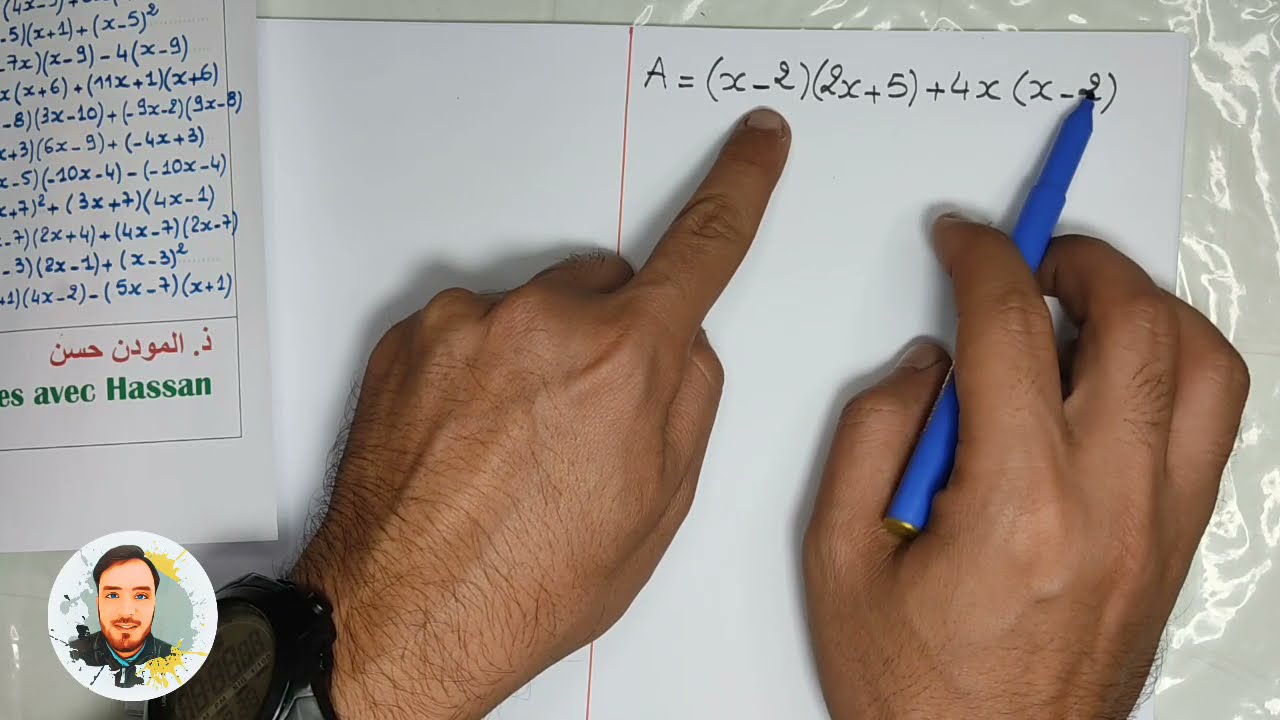 -5)(x+1)+(x-5)²
-7x)(x-9)-4(x-9)
x(x+6)+(11x+1)(x+6)
-8)(3x-10)+(-9x-2)(9x-8)
x+3)(6x-9)+(-4x+3)
x-5)(-10x-4)-(-10x-4)
x+7)²+(3x+7)(4x-1)
-7)(2x+4)+(4x-7)(2x-7)
-3)(2x-1)+(x-3)²
+1)(4x-2)-(5x-7)(x+1)
ذ. المودن حسن
es avec Hassan
A = (x-2)(2x+5)+4x(x-2)